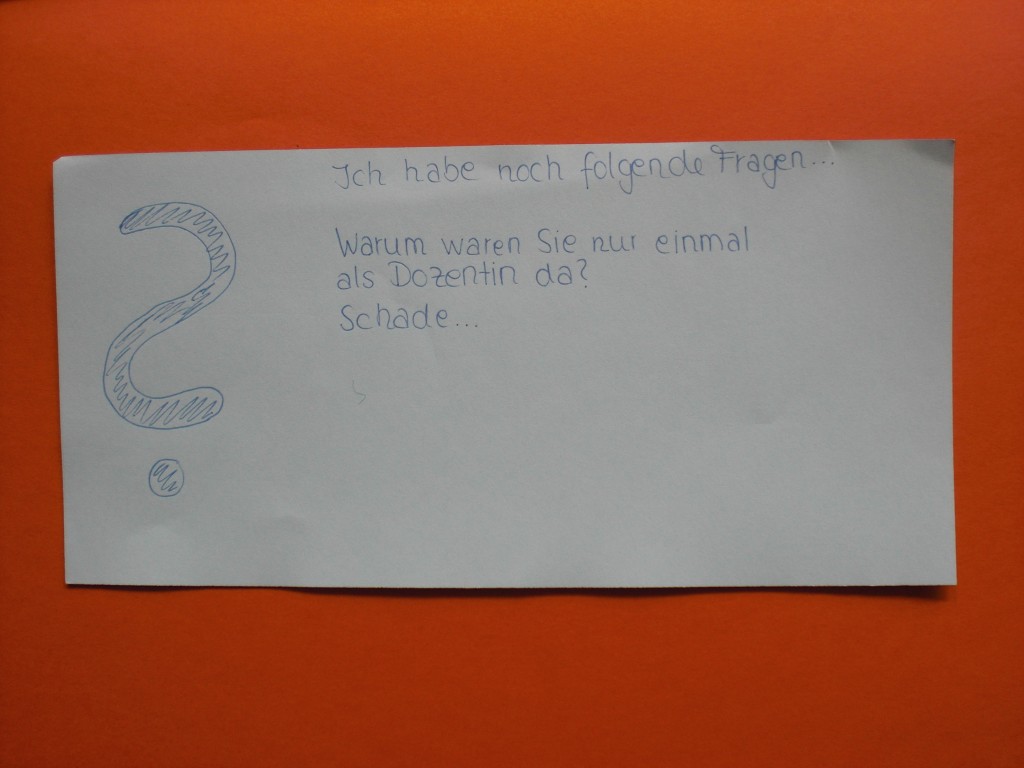 Ich habe noch folgende Fragen...
Warum waren Sie nur einmal
als Dozentin da?
Schade...